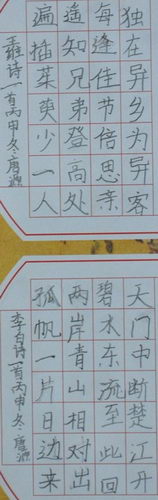 独在异乡为异客
每逢佳节倍思亲
遥知兄弟登高处
遍插茱萸少一人
王维诗一首丙申冬唐
天门中断楚江开
碧水东流至此回
两岸青山相对出
孤帆一片日边来
李白诗一首丙申冬唐